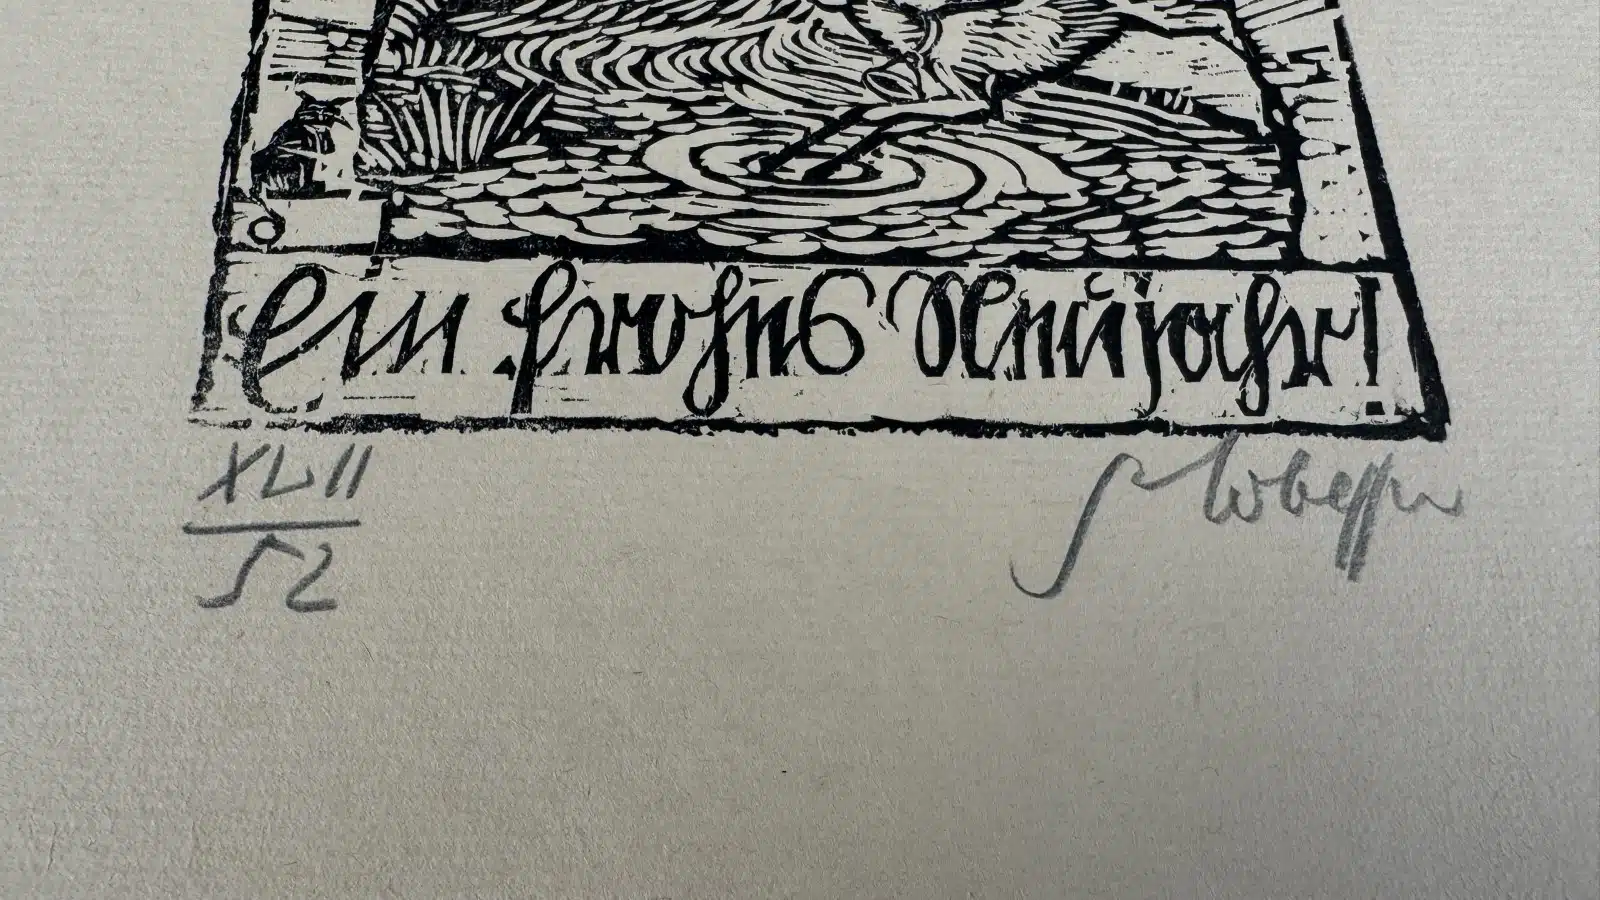 Ein frohes Neujahr!
XLII
52